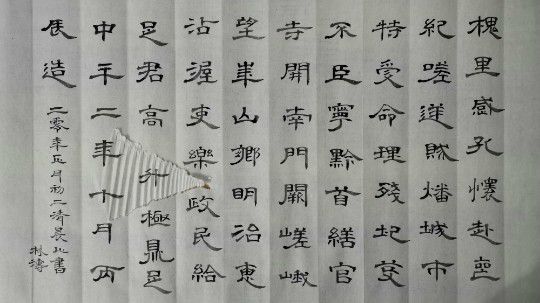 槐里感孔懷赴喪
紀嗟逆賊燔城市
特受命理殘圮芟
不臣寧黔首繕官
寺開南門闕嵯峨
望華山鄉明治惠
沾渥吏樂政民給
足君高升極鼎足
中平二年十月丙
辰造
二零年正月初二清晨書
林